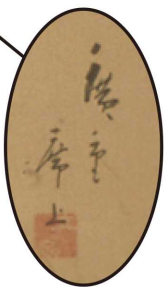 廣重
席上